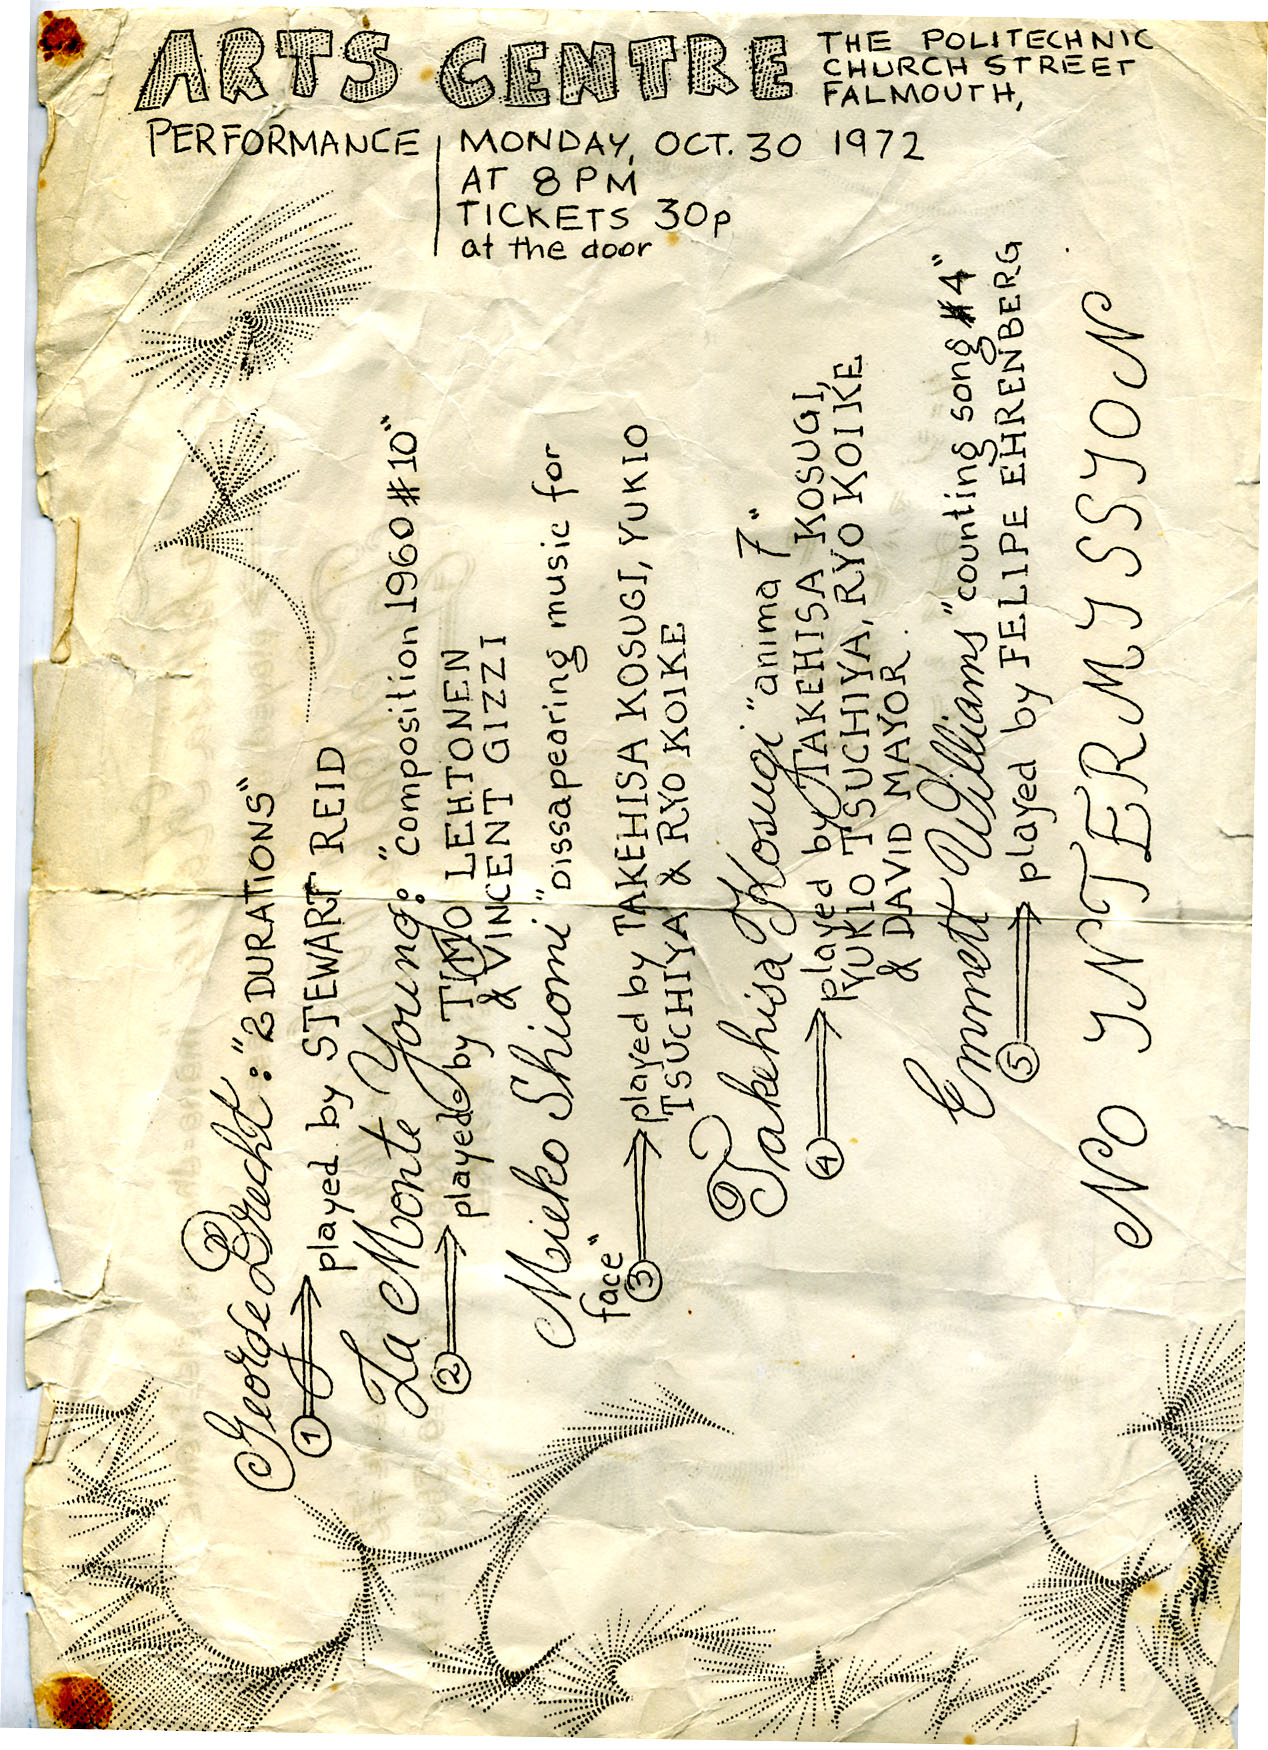 ARTS CENTRE
THE POLITECHNIC
CHURCH STREET
FALMOUTH,
PERFORMANCE
MONDAY, OCT. 30 1972
AT 8 PM
TICKETS 30p
at the door
George Brecht: "2 DURATIONS"
1 played by STEWART REID
La Monte Young: "composition 1960 #10"
2 played by TIMO LEHTONEN
& VINCENT GIZZI
Mieko Shiomi "Dissapearing music for
face"
3 played by TAKEHISA KOSUGI, YUKIO
TSUCHIYA & RYO KOIKE
Takehisa Kosugi "anima 7"
4 played by TAKEHISA KOSUGI,
YUKIO TSUCHIYA, RYO KOIKE
& DAVID MAYOR.
Emmett Williams "counting song #4"
5 played by FELIPE EHRENBERG
NO YNTERMYSSYON